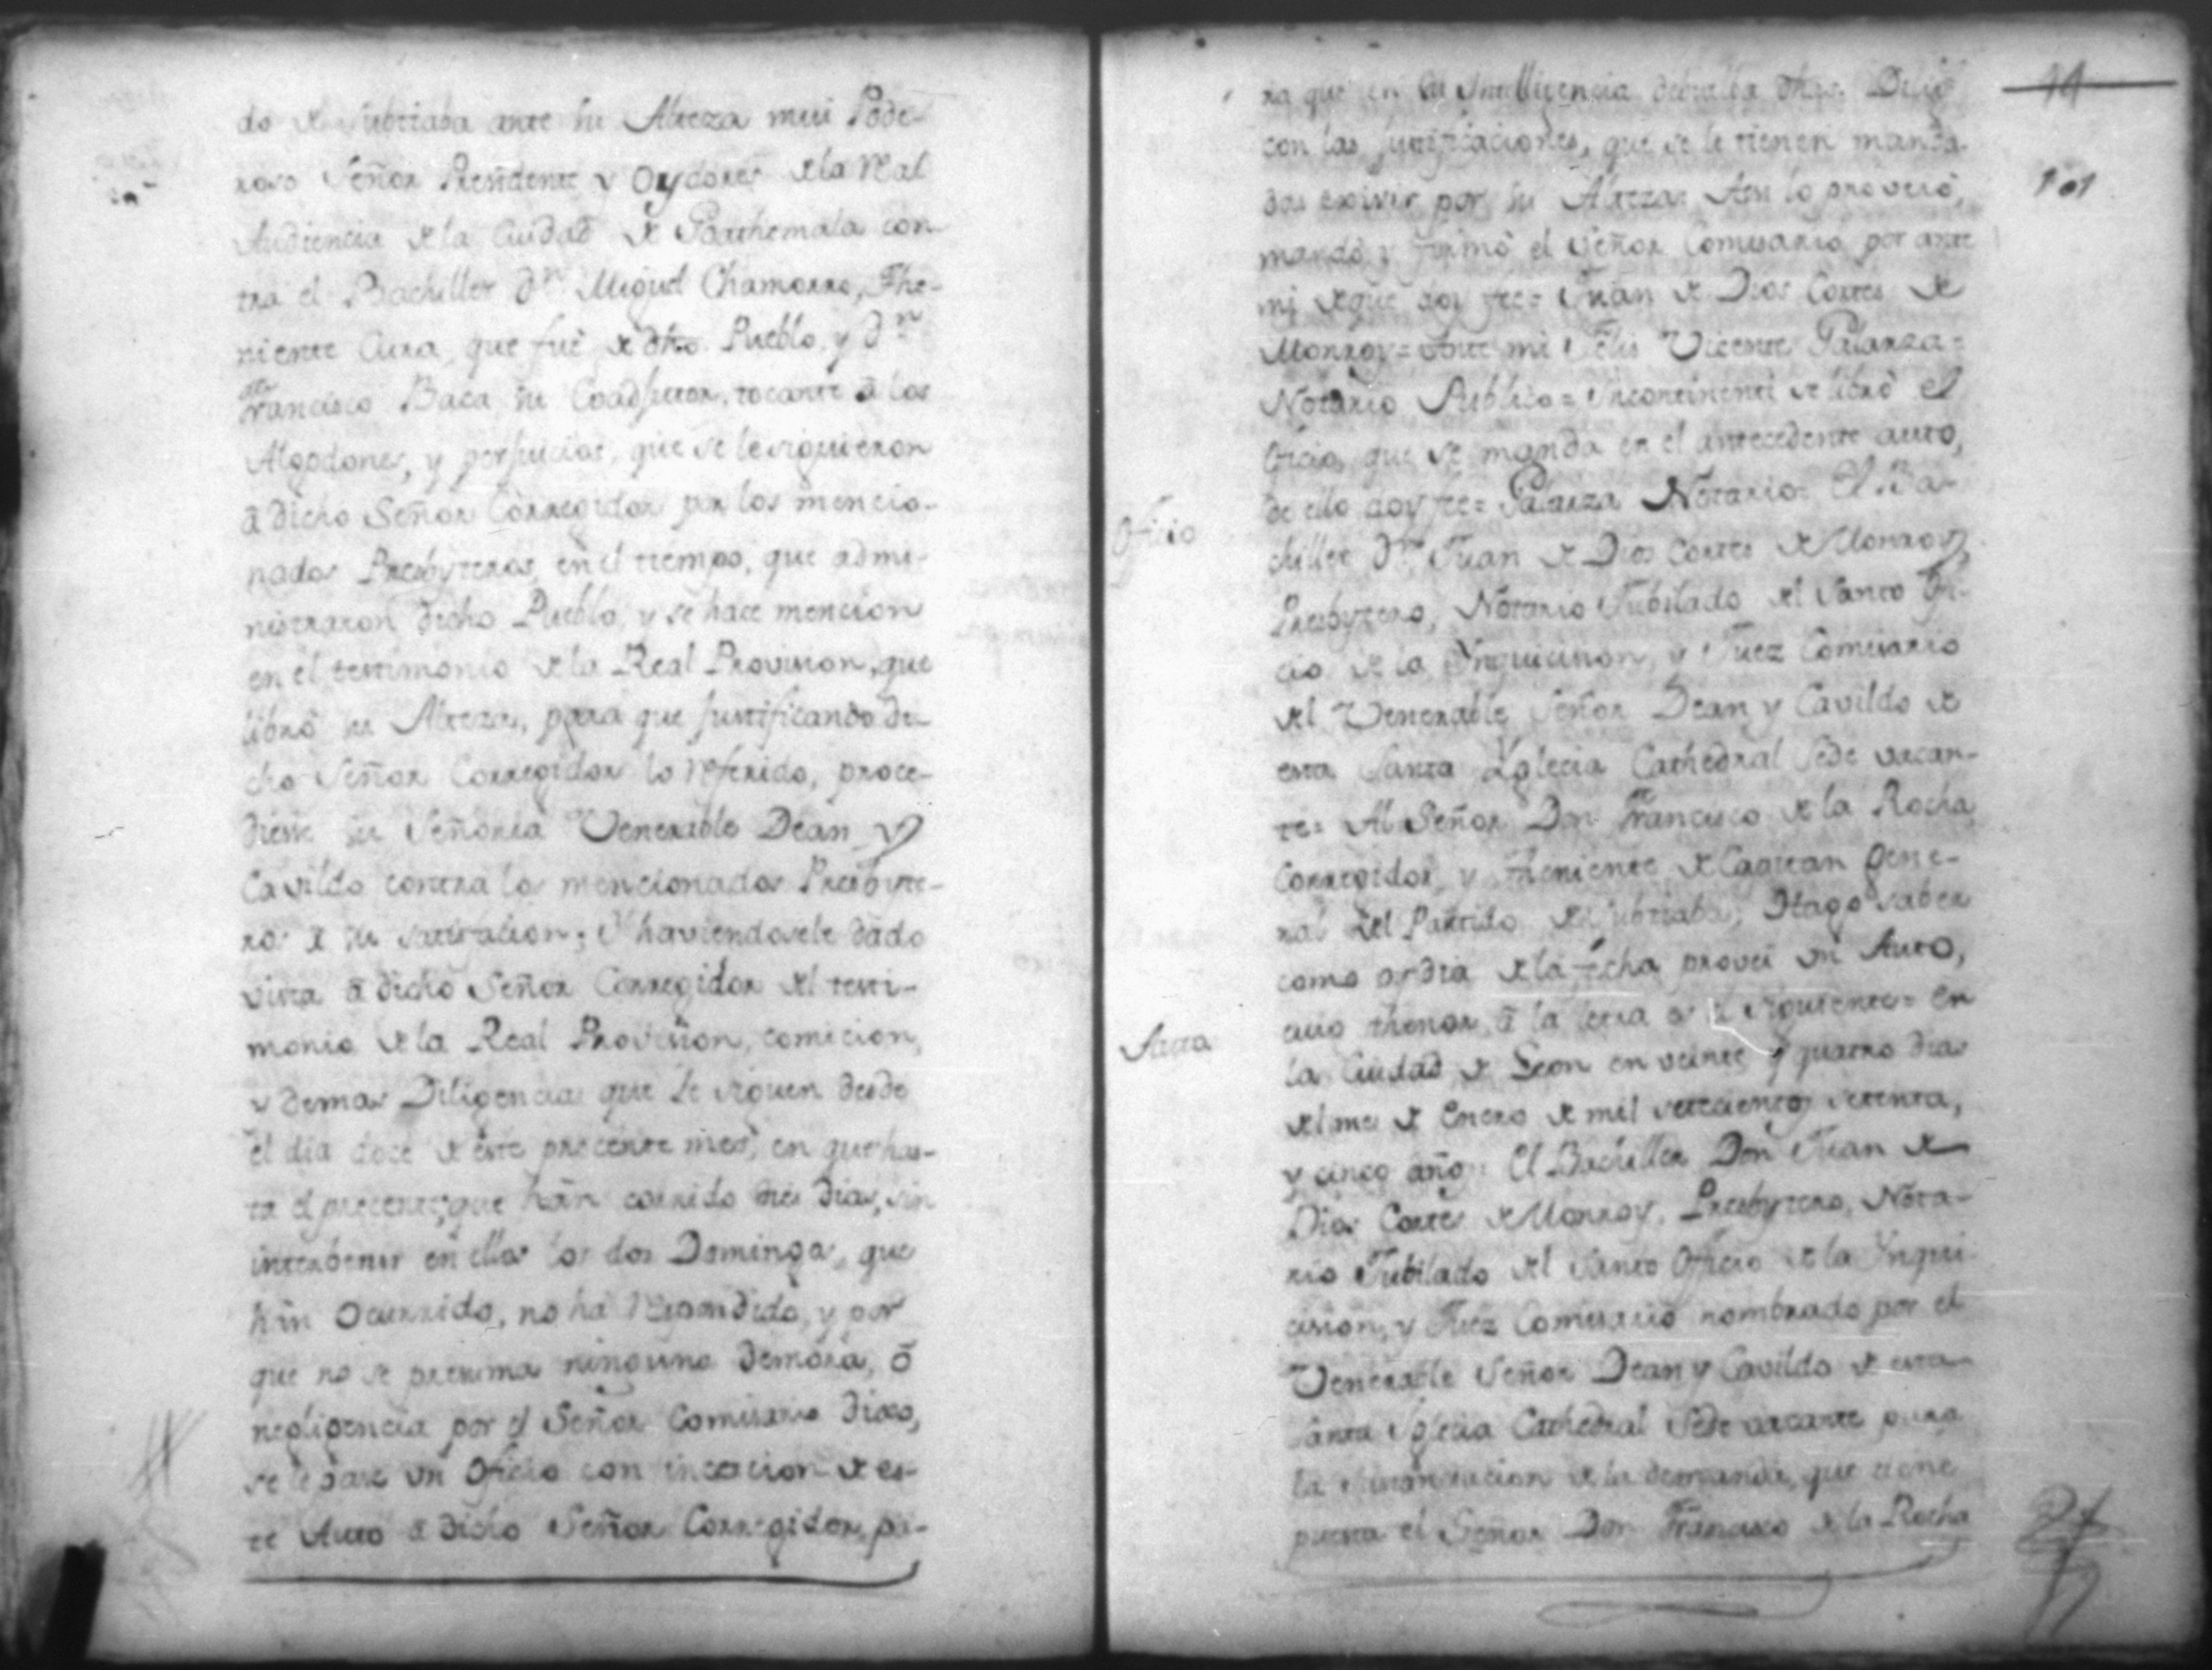 do de Subtiaba ante su Alteza mui Pode-
roso Señor Presidente y Oydores de la Real
Audiencia de la Ciudad de Goathemala con-
tra el Bachiller Dn. Miguel Chamorro, The-
niente Cura, que fué de dho. Pueblo, y Dn
Francisco Baca su Coadjutor, tocante á los
Algodones, y perjuicios, que se le siguieron
á dicho Señor Corregidor por los mencio-
nados Presbyteros, en el tiempo, que admi-
nistraron dicho Pueblo, y se hace mencion
en el testimonio de la Real Provision, que
libró su Alteza, para que justificando di-
cho Señor Corregidor lo referido, proce-
diese su Señoria Venerable Dean y
Cavildo contra los mencionados Presbyte-
ros á su satisfacion; Y haviendosele dado
vista á dicho Señor Corregidor del testi-
monio de la Real Provision, comicion,
y demas Diligencias que se siguen desde
el dia doce de este precente mes, en que has-
ta el precente, que hán corrido dies dias, sin
interbenir en ellos los dos Domingos, que
hán ocurrido, no há respondido, y por
que no se presuma ninguna demóra, ó
negligencia por el Señor Comisario dixo,
se le pase un Oficio con incercion de es-
te Auto á dicho Señor Corregidor, pa-
14
101
ra que en su Intelligencia
con las justificaciones, que se le tienen manda-
das exivir por su Alteza: Assi lo proveió,
mandó y firmó el Señor Comisario por ante
mi de que doy fee= Juan de Dios Cortes de
Monroy= Ante mi Felis Vicente Palarza=
Notario Publico= Yncontinenti se libró el
Oficio, que se manda en el antecedente auto,
Oficio
de ello doy fee= Palarza Notario= El Ba-
chiller Dn. Juan de Dios Cortes de Monroy,
Presbytero, Notario Jubilado del Santo Ofi-
cio de la Ynquicision, y Juez Comisario
del Venerable Señor Dean y Cavildo de
esta Santa Yglecia Cathedral Sede vacan-
te= Al Señor Don Francisco de la Rocha
Corregidor, y Theniente de Capitan Gene-
ral del Partido de Subtiaba; Hago saber
como oy dia de la fecha provei un Auto,
cuio thenor á la letra es el siguiente= En
Auto
la Ciudad de Leon en veinte y quatro dias
del mes de Enero de mil setecientos setenta,
y cinco años: El Bachiller Don Juan de
Dios Cortes de Monroy, Presbytero, Nota-
rio Jubilado del Santo Oficio de la Ynqui-
cision, y Juez Comisario nombrado por el
Venerable Señor Dean y Cavildo de esta
Santa Yglecia Cathedral Sede vacante para
la de la demanda, que tiene
puesta el Señor Don Francisco de la Rocha